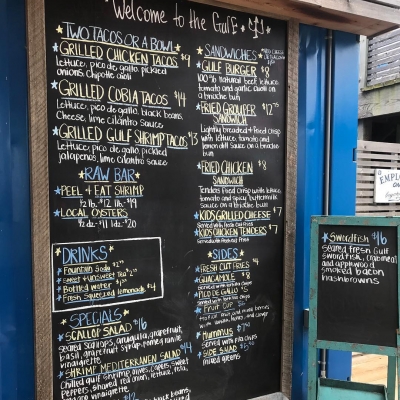 Welcome to the Gulf
TWO TACOS OR A BOWL
GRILLED CHICKEN TACOS $9
lettuce, pico de gallo, pickled
onions, chipotle aioli
GRILLED COBIA TACOS $14
Lettuce, pico de gallo, black beans,
Cheese, lime cilantro sauce
GRILLED GULF SHRIMP TACOS $13
Lettuce, pico de gallo, pickled
jalapenos, lime cilantro sauce
RAW BAR
PEEL + EAT SHRIMP
1/2 lb. $12 1 lb. $19
LOCAL OYSTERS
1/2 dz. $11 1 dz. $20
DRINKS
Fountain Soda
Sweet + Unsweet Tea
Bottled Water
Fresh Squeezed Lemonade $4
SPECIALS
SCALLOP SALAD $16
Seared Scallops, arugula, grapefruit,
basil, grapefruit
vinaigrette
SHRIMP MEDITERRANEAN SALAD $14
Chilled gulf shrimp, olives, capers, sweet
Peppers, shaved red onion, feta,
vinaigrette
SANDWICHES
GULF BURGER $8
100% natural beef, lettuce,
tomato and garlic aioli on
a brioche bun
FRIED GROUPER $12.75
SANDWICH
Lightly breaded + fried crisp
with lettuce, tomato and
lemon dill sauce on a brioche
bun
FRIED CHICKEN $8
SANDWICH
Tenders fried crisp with lettuce,
tomato and spicy buttermilk
Sauce on a brioche bun
KIDS GRILLED CHEESE $7
Served with fresh cut fries
KIDS CHICKEN TENDERS $7
Served with fresh cut fries
SIDES
FRESH CUT FRIES $4
GUACAMOLE $8
Served with tortilla chips
PICO DE GALLO
Served with tortilla chips
FRUIT CUP
HUMMUS $7
Served with pita chips
SIDE SALAD
mixed greens
SWORDFISH $16
Seared fresh Gulf
Swordfish, crabmeat
and applewood
smoked bacon
hashbrowns